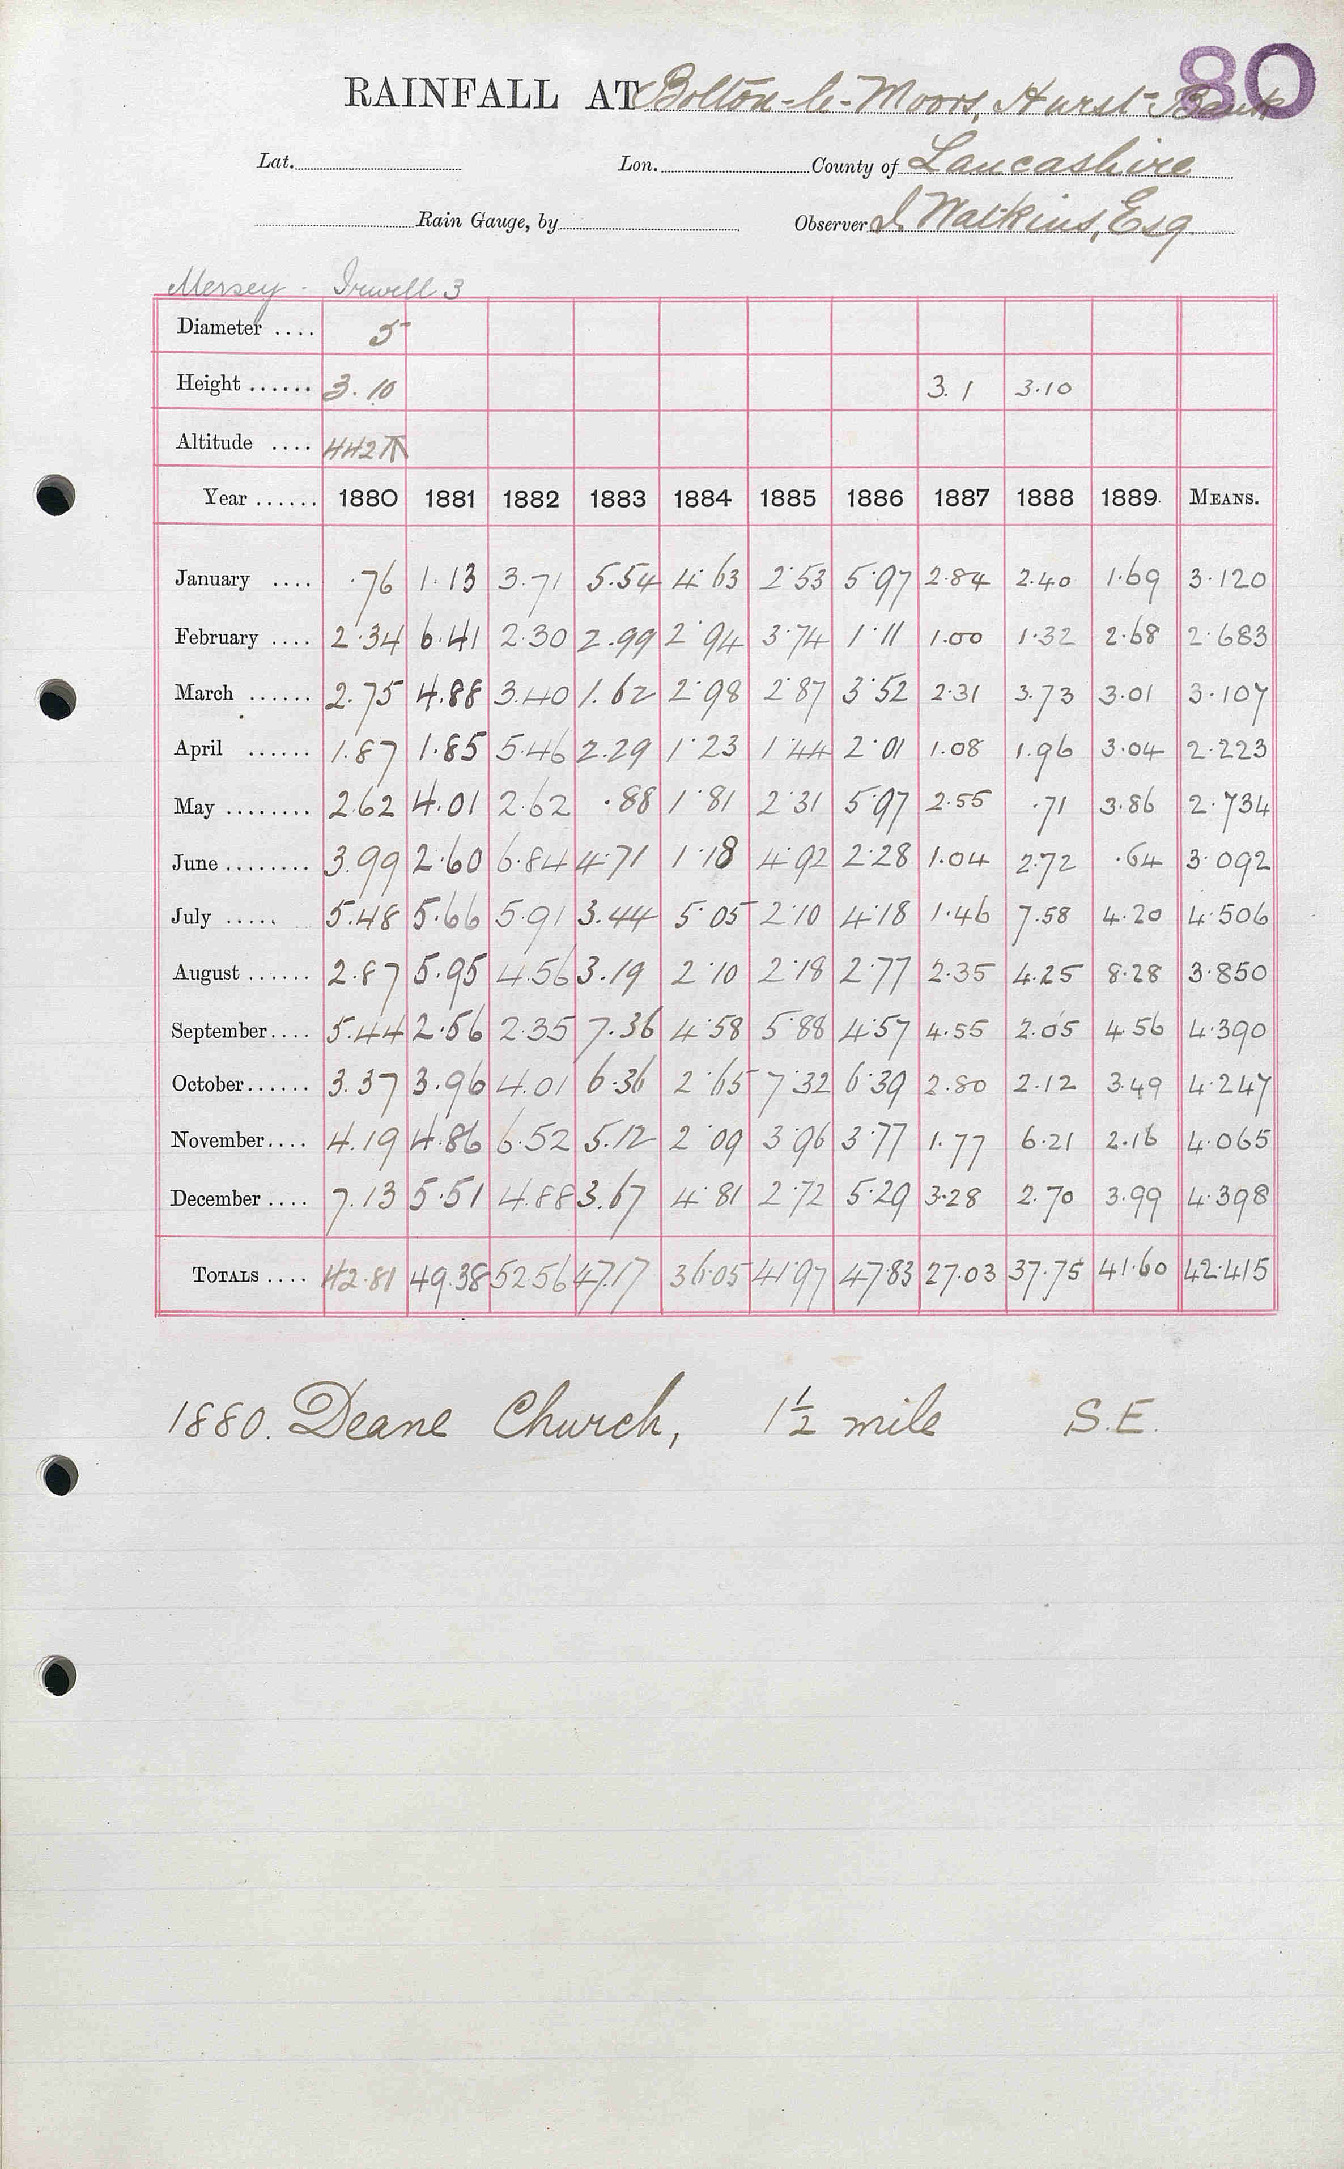 80
RAINFALL AT Bolton-le-Moors, Hurst Bank
Lat. Lon. County of Lancashire
Rain Gauge, by Observer J Watkins, Esq
Mersey - Irwell 3
Diameter .... 5
Height ...... 3.10 3.1 3.10
Altitude .... 442 T
Year ...... 1880 1881 1882 1883 1884 1885 1886 1887 1888 1889. MEANS.
January .... .76 1.13 3.71 5.54 4.63 2.53 5.97 2.84 2.40 1.69 3.120
February .... 2.34 6.41 2.30 2.99 2.94 3.74 1.11 1.00 1.32 2.68 2.683
March ...... 2.75 4.88 3.40 1.62 2.98 2.87 3.52 2.31 3.73 3.01 3.107
April ...... 1.87 1.85 5.46 2.29 1.23 1.44 2.01 1.08 1.96 3.04 2.223
May ........ 2.62 4.01 2.62 .88 1.81 2.31 5.97 2.55 .71 3.86 2.734
June ........ 3.99 2.60 6.84 4.71 1.18 4.92 2.28 1.04 2.72 .64 3.092
July ..... 5.48 5.66 5.91 3.44 5.05 2.10 4.18 1.46 7.58 4.20 4.506
August ...... 2.87 5.95 4.56 3.19 2.10 2.18 2.77 2.35 4.25 8.28 3.850
September.... 5.44 2.56 2.35 7.36 4.58 5.88 4.57 4.55 2.05 4.56 4.390
October...... 3.37 3.96 4.01 6.36 2.65 7.32 6.39 2.80 2.12 3.49 4.247
November.... 4.19 4.86 6.52 5.12 2.09 3.96 3.77 1.77 6.21 2.16 4.065
December .... 7.13 5.51 4.88 3.67 4.81 2.72 5.29 3.28 2.70 3.99 4.398
TOTALS .... 42.81 49.38 52.56 47.17 36.05 41.97 47.83 27.03 37.75 41.60 42.415
1880. Deane Church, 1½ mile S.E.